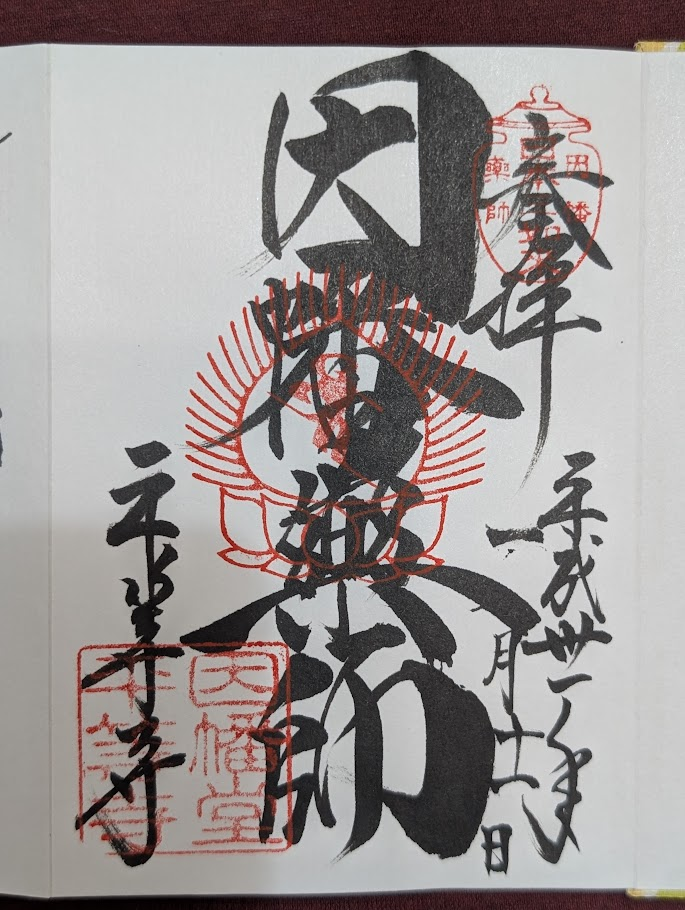 奉拝
因幡
藥師
平成卅一年
一月十一日
因幡薬師
平等寺
因幡堂
平等寺